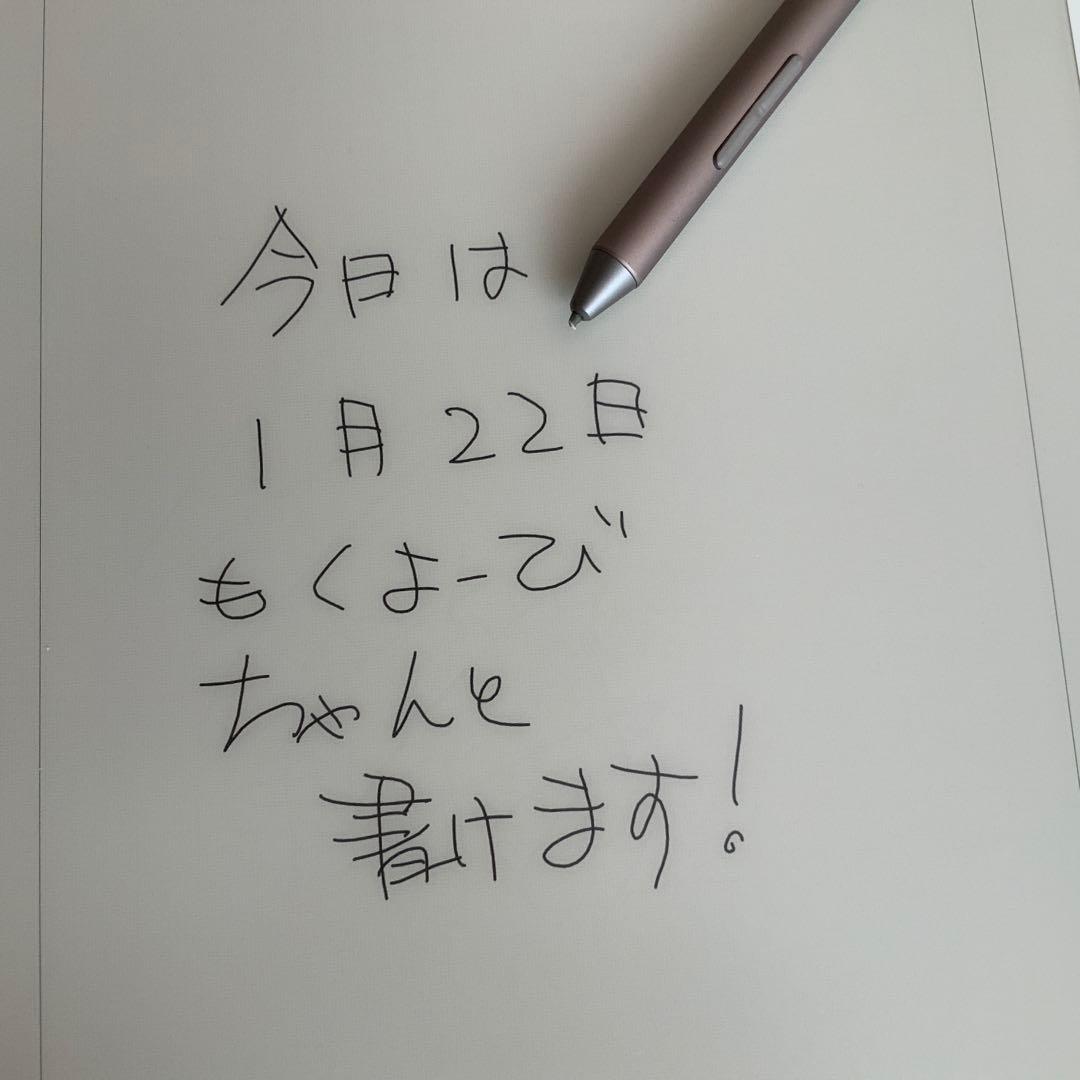 今日は
1月22日
もくよーび
ちゃんと
書けます!